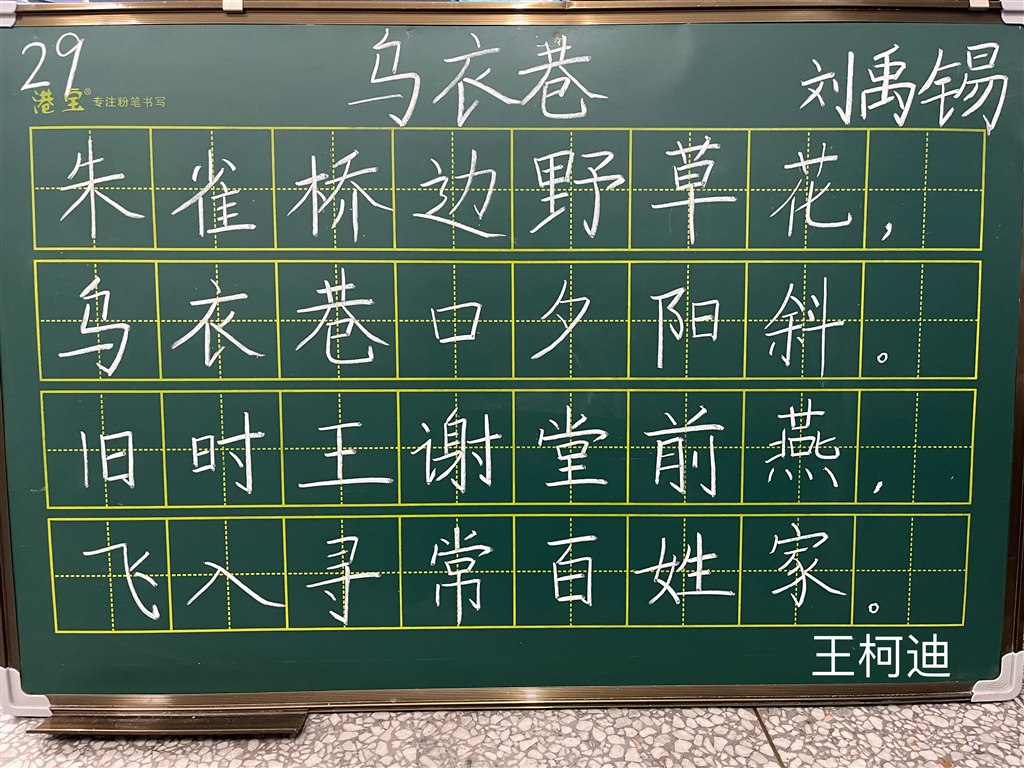 29 乌衣巷 刘禹锡
港宝® 专注粉笔书写
朱雀桥边野草花，
乌衣巷口夕阳斜。
旧时王谢堂前燕，
飞入寻常百姓家。
王柯迪